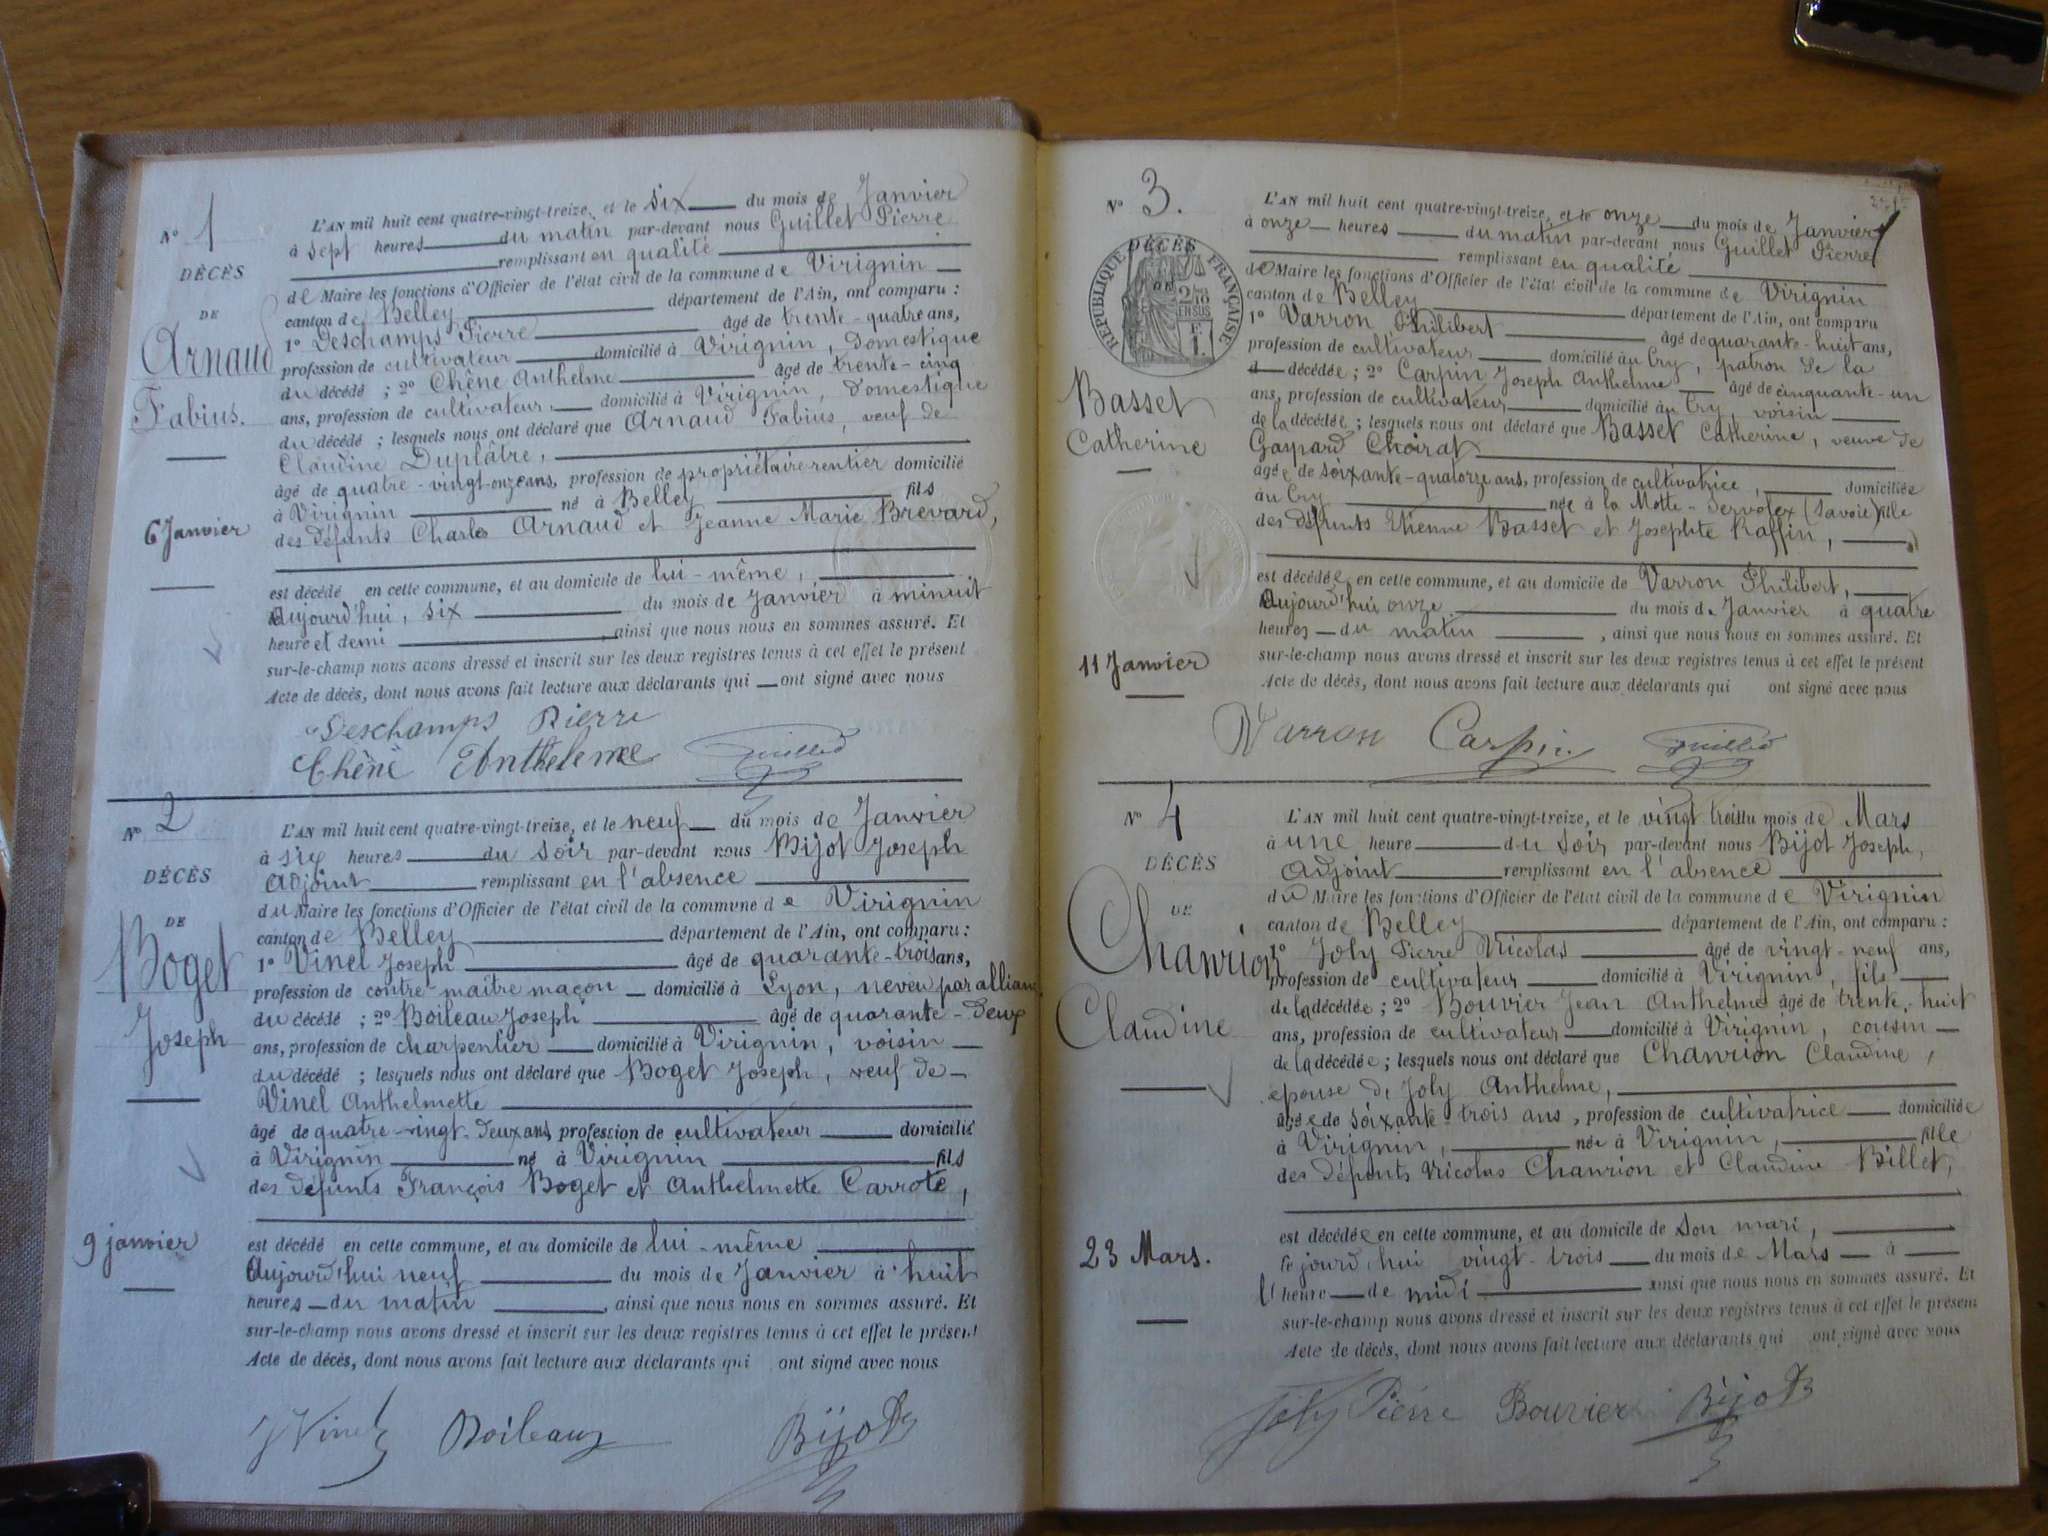 N° 1
DÉCÈS
DE
Arnaud
Fabius.
6 Janvier
L'AN mil huit cent quatre-vingt-treize, et le six du mois de Janvier
à sept heures du matin par-devant nous Guillet Pierre
remplissant en qualité
de Maire les fonctions d'Officier de l'état civil de la commune de Virignin
canton de Belley département de l'Ain, ont comparu :
1° Deschamps Pierre âgé de trente-quatre ans,
profession de cultivateur domicilié à Virignin, domestique
du décédé ; 2° Chêne Anthelme âgé de trente-cinq
ans, profession de cultivateur, domicilié à Virignin, domestique
du décédé ; lesquels nous ont déclaré que Arnaud Fabius, veuf de
Claudine Duplâtre,
âgé de quatre-vingt-onze ans, profession de propriétaire rentier domicilié
à Virignin né à Belley fils
des défunts Charles Arnaud et Jeanne Marie Brevard,
est décédé en cette commune, et au domicile de lui-même,
Aujourd'hui, six du mois de Janvier à minuit
heure et demi , ainsi que nous nous en sommes assuré. Et
sur-le-champ nous avons dressé et inscrit sur les deux registres tenus à cet effet le présent
Acte de décès, dont nous avons fait lecture aux déclarants qui ont signé avec nous
Deschamps Pierre
Chêne Anthelme
N° 2
DÉCÈS
DE
Boget
Joseph
9 janvier
L'AN mil huit cent quatre-vingt-treize, et le neuf du mois de Janvier
à six heures du soir par-devant nous Bijot Joseph
Adjoint remplissant en l'absence
du Maire les fonctions d'Officier de l'état civil de la commune de Virignin
canton de Belley département de l'Ain, ont comparu :
1° Vinel Joseph âgé de quarante-trois ans,
profession de contre-maître maçon domicilié à Lyon, neveu par allian
du décédé ; 2° Boileau Joseph âgé de quarante-deux
ans, profession de charpentier domicilié à Virignin, voisin
du décédé ; lesquels nous ont déclaré que Boget Joseph, veuf de
Vinel Anthelmette
âgé de quatre-vingt-deux ans, profession de cultivateur domicilié
à Virignin né à Virignin fils
des défunts François Boget et Anthelmette Carrote,
est décédé en cette commune, et au domicile de lui-même
Aujourd'hui neuf du mois de Janvier à huit
heures du matin , ainsi que nous nous en sommes assuré. Et
sur-le-champ nous avons dressé et inscrit sur les deux registres tenus à cet effet le présent
Acte de décès, dont nous avons fait lecture aux déclarants qui ont signé avec nous
J Vinel Boileau Bijot
N° 3.
RÉPUBLIQUE FRANÇAISE
DÉCÈS
2/10
EN SUS
Basset
Catherine
11 Janvier
L'AN mil huit cent quatre-vingt-treize, et le onze du mois de Janvier
à onze heures du matin par-devant nous Guillet Pierre
remplissant en qualité
de Maire les fonctions d'Officier de l'état civil de la commune de Virignin
canton de Belley département de l'Ain, ont comparu
1° Varron Philibert âgé de quarante-huit ans,
profession de cultivateur domicilié au Cry, patron de la
décédée ; 2° Carpin Joseph Anthelme âgé de cinquante-un
ans, profession de cultivateur domicilié au Cry, voisin
de la décédée ; lesquels nous ont déclaré que Basset Catherine, veuve de
Gaspard Choirat
âgée de soixante-quatorze ans, profession de cultivatrice, domiciliée
au Cry née à la Motte-Servolex (Savoie) fille
des défunts Etienne Basset et Josephte Raffin,
est décédée en cette commune, et au domicile de Varron Philibert,
Aujourd'hui onze du mois de Janvier à quatre
heures du matin , ainsi que nous nous en sommes assuré. Et
sur-le-champ nous avons dressé et inscrit sur les deux registres tenus à cet effet le présent
Acte de décès, dont nous avons fait lecture aux déclarants qui ont signé avec nous
Varron Carpin
N° 4
DÉCÈS
DE
Chanrion
Claudine
23 Mars.
L'AN mil huit cent quatre-vingt-treize, et le vingt trois du mois de Mars
à une heure du soir par-devant nous Bijot Joseph,
Adjoint remplissant en l'absence
du Maire les fonctions d'Officier de l'état civil de la commune de Virignin
canton de Belley département de l'Ain, ont comparu :
1° Joly Pierre Nicolas âgé de vingt-neuf ans,
profession de cultivateur domicilié à Virignin, fils
de la décédée ; 2° Bouvier Jean Anthelme âgé de trente-huit
ans, profession de cultivateur domicilié à Virignin, cousin
de la décédée ; lesquels nous ont déclaré que Chanrion Claudine,
epouse de Joly Anthelme,
âgée de soixante-trois ans, profession de cultivatrice domiciliée
à Virignin, née à Virignin, fille
des défunts Nicolas Chanrion et Claudine Billet,
est décédée en cette commune, et au domicile de son mari,
Ce jourd'hui vingt-trois du mois de Mars à
l' heure de midi ainsi que nous nous en sommes assuré. Et
sur-le-champ nous avons dressé et inscrit sur les deux registres tenus à cet effet le présent
Acte de décès, dont nous avons fait lecture aux déclarants qui ont signé avec nous
Joly Pierre Bouvier Bijot